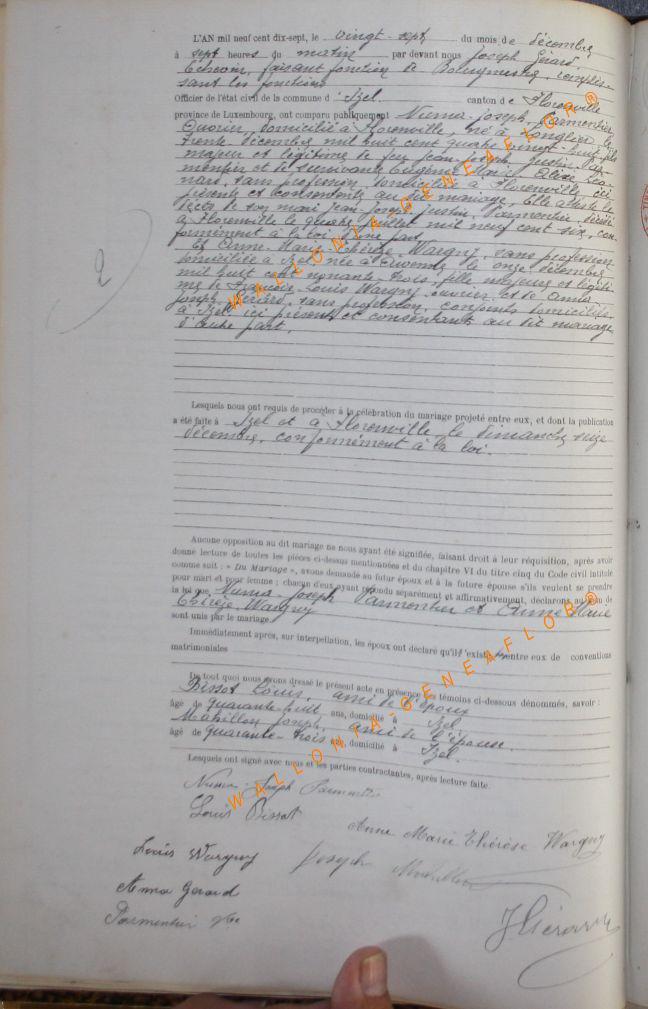 L'AN mil neuf cent dix-sept, le vingt-sept du mois de décembre
à sept heures du matin par devant nous Joseph Gérard,
Echevin, faisant fonction de Bourgmestre, remplis-
sant les fonctions
Officier de l'état civil de la commune d'Izel canton de Florenville
province de Luxembourg, ont comparu publiquement Numa-Joseph Parmentier
Ouvrier, domicilié à Florenville, né à Longlier, le
trente décembre mil huit cent quatre vingt-huit, fils
majeur et légitime de feu Jean-Joseph Justin Par-
mentier et de survivante Eugénie Marie Elise
sans profession, domiciliée à Florenville, ici
présente et consentante au dit mariage, Elle atteste le
décès de son mari Jean-Joseph Justin Parmentier, décédé
à Florenville le quatre Juillet mil neuf cent six, con-
formément à la loi, d'une part,
Et Anne-Marie-Thérèse Wargny, sans profession
domiciliée à Izel née à le onze décembre
mil huit cent nonante-trois, fille majeure et légiti-
me de François-Louis Wargny, ouvrier et de Anna
Joseph Gérard, sans profession, conjoints domiciliés
à Izel, ici présents et consentants au dit mariage
d'autre part.
2
Lesquels nous ont requis de procéder à la célébration du mariage projeté entre eux, et dont la publication
a été faite à Izel et à Florenville le dimanche seize
décembre, conformément à la loi.
Aucune opposition au dit mariage ne nous ayant été signifiée, faisant droit à leur réquisition, après avoir
donné lecture de toutes les pièces ci-dessus mentionnées et du chapitre VI du titre cinq du Code civil intitulé
comme suit : « Du Mariage », avons demandé au futur époux et à la future épouse s'ils veulent se prendre
pour mari et pour femme ; chacun d'eux ayant répondu séparément et affirmativement, déclarons au nom de
la loi que Numa-Joseph Parmentier et Anne Marie
Thérèse Wargny
sont unis par le mariage.
Immédiatement après, sur interpellation, les époux ont déclaré qu'il n'existe entre eux de conventions
matrimoniales
De tout quoi nous avons dressé le présent acte en présence des témoins ci-dessous dénommés, savoir :
Bissot Louis, ami de l'époux
âgé de quarante-huit ans, domicilié à Izel
Mabillon Joseph, ami de l'épouse.
âgé de quarante-trois ans, domicilié à Izel.
Lesquels ont signé avec nous et les parties contractantes, après lecture faite.
Numa-Joseph Parmentier
Louis Bissot
Anne Marie Thérèse Wargny
Louis Wargny
Joseph Mabillon
Anna Gerard
Parmentier
J Gérard
WALLONIA-GENEAFLOR®
WALLONIA-GENEAFLOR®